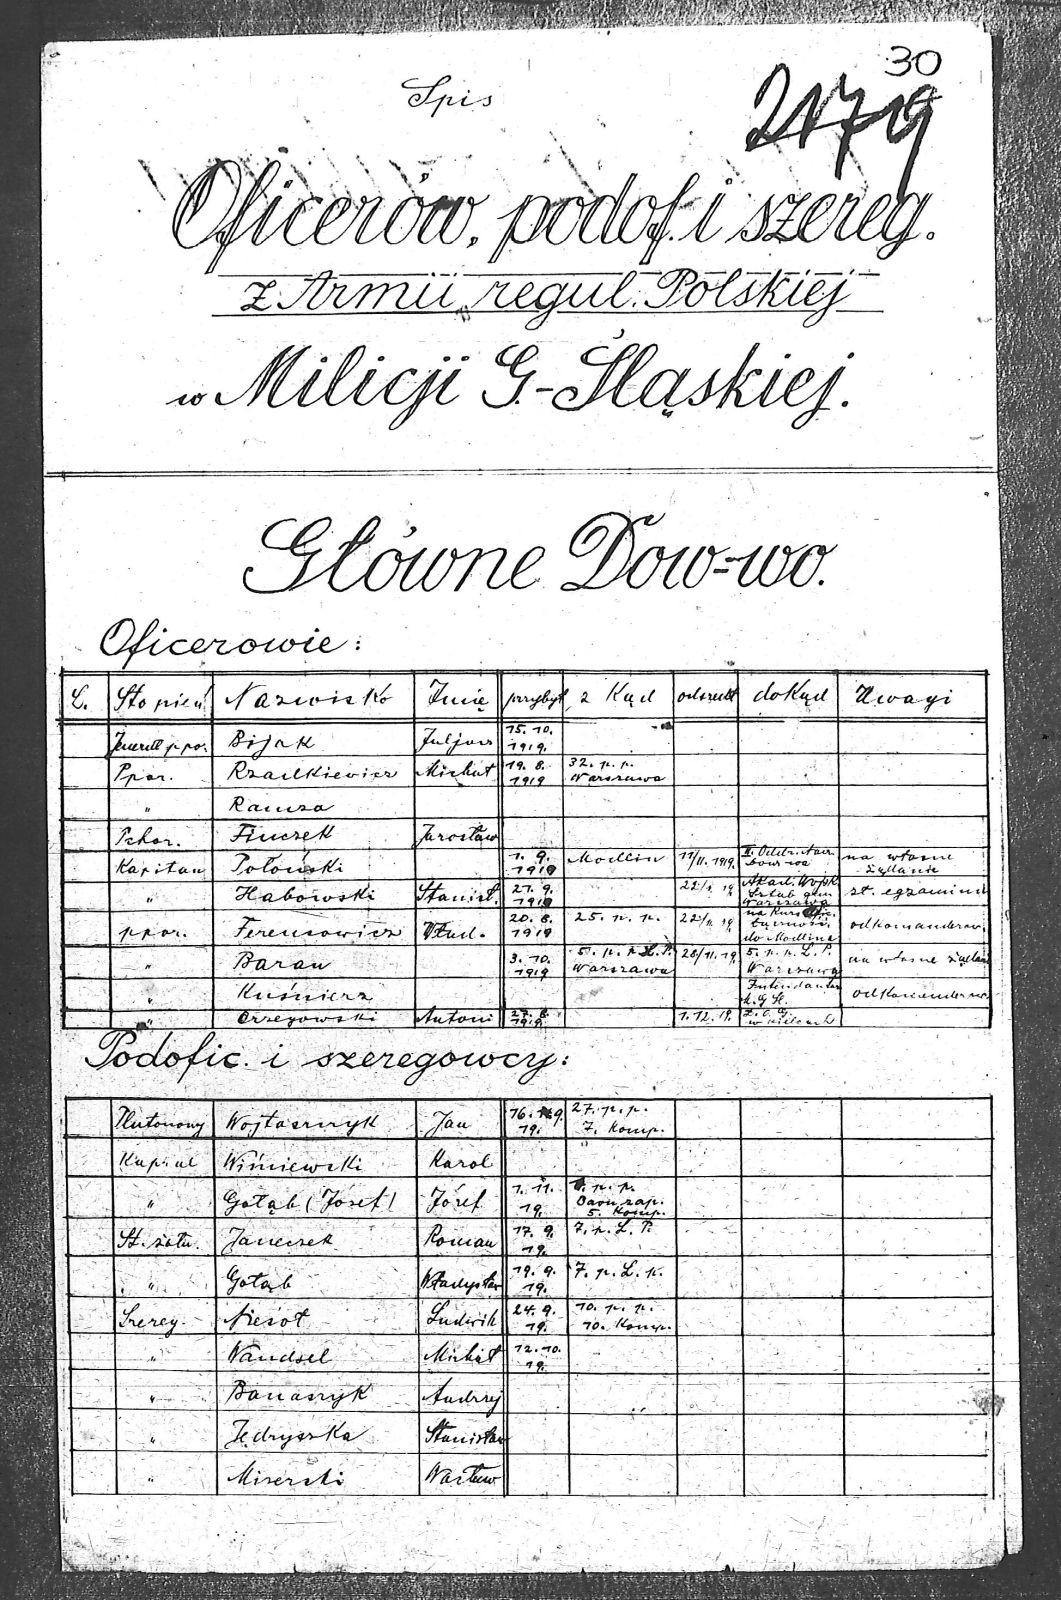 30
2179
Spis
Oficerów, podof. i szereg.
z Armii regul. Polskiej
w Milicji G.-Śląskiej.
Główne Dow=wo.
Oficerowie:
L. Stopień Nazwisko Imię przybył z Kąd odszedł doKąd Uwagi
ppor. Bijak Juljan 15. 10. 1919.
Ppor. Rzadkiewicz Michał 19. 8. 1919 32. p. p. Warszawa
" Ramza
Pchor. Jarosław
Kapitan Połoński 1. 9. 1919 Modlin 11/11. 1919. II. Oddz. Nacz. Dow-wa na własne żądanie
" Habowski Stanisł. 21. 9. 1919 Akad. Wojsk. Sztab gen Warszawa zł. egzamina
ppor. Ferensowicz Wład. 20. 8. 1919 25. p. p. na Kurs Ofic. łączności do Modlina odkomanderow.
" Baran 3. 10. 1919 5. p. p. L. P. Warszawa 28/11. 19. 5. p. p. L. P. Warszawa na własne żądan
" Kuśnierz odkomanderow.
" Orzegowski Antoni 27. 8. 1919. 1. 12. 19. w Kielcach
Podofic. i szeregowcy:
Plutonowy Wojtaszczyk Jan 16. 19. 27. p. p. 7. Komp.
Kapral Wiśniewski Karol "
" Gołąb (Józef) Józef 1. 11. 19. p. p. Baon zap. 5. Komp.
St. żołn. Janeczek Roman 17. 9. 19. 7. p. L. P.
" Gołąb Władysław 19. 9. 19. 7. p. L. p.
Szereg. Niesot Ludwik 24. 9. 19. 10. p. p. 10. Komp.
" Wandzel Michał 12. 10. 19.
" Banaszyk Andrzej
" Jędryszka Stanisław
" Mizerski Wacław